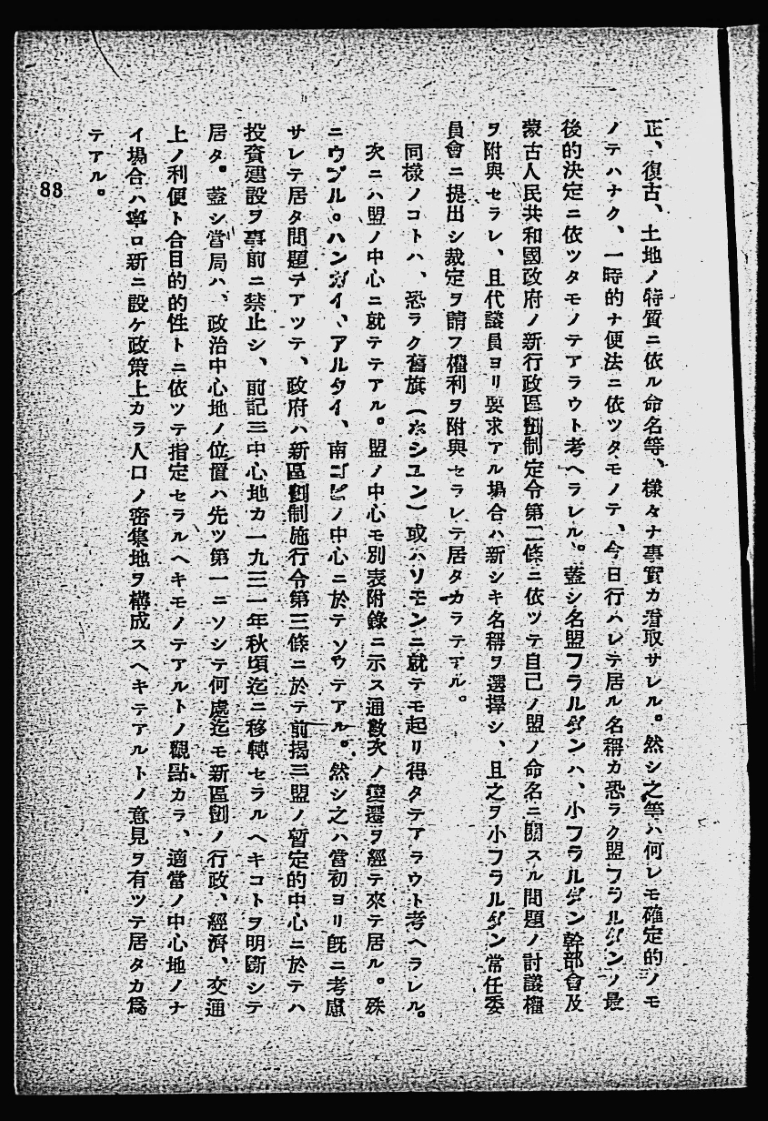 正、復古、土地ノ特質ニ依ル命名等、樣々ナ事實カ看取サレル。然シ之等ハ何レモ確定的ノモ
ノテハナク、一時的ナ便法ニ依ツタモノテ、今日行ハレテ居ル名稱カ恐ラク盟フラルダンノ最
後的決定ニ依ツタモノテアラウト考ヘラレル。蓋シ名盟フラルダンハ、小フラルダン幹部會及
蒙古人民共和國政府ノ新行政區劃制定令第二條ニ依ツテ自己ノ盟ノ命名ニ關スル問題ノ討議權
ヲ附與セラレ、且代議員ヨリ要求アル場合ハ新シキ名稱ヲ選擇シ、且之ヲ小フラルダン常任委
員會ニ提出シ裁定ヲ請フ權利ヲ附與セラレテ居タカラテアル。
同樣ノコトハ、恐ラク舊旗(ホシユン)或ハソモンニ就テモ起リ得タテアラウト考ヘラレル。
次ニハ盟ノ中心ニ就テテアル。盟ノ中心モ別表附錄ニ示ス通數次ノ變遷ヲ經テ來テ居ル。殊
ニウブル。ハンガイ、アルタイ、南ゴビノ中心ニ於テソウテアル。然シ之ハ當初ヨリ旣ニ考慮
サレテ居タ問題テアツテ、政府ハ新區劃制施行令第三條ニ於テ前揭三盟ノ暫定的中心ニ於テハ
投資建設ヲ事前ニ禁止シ、前記三中心地カ一九三一年秋頃迄ニ移轉セラルヘキコトヲ明斷シテ
居タ。蓋シ當局ハ、政治中心地ノ位置ハ先ツ第一ニソシテ何處迄モ新區劃ノ行政、經濟、交通
上ノ利便ト合目的的性トニ依ツテ指定セラルヘキモノテアルトノ觀點カラ、適當ノ中心地ノナ
イ場合ハ寧ロ新ニ設ケ政策上カラ人口ノ密集地ヲ構成スヘキテアルトノ意見ヲ有ツテ居タカ爲
テアル。
88